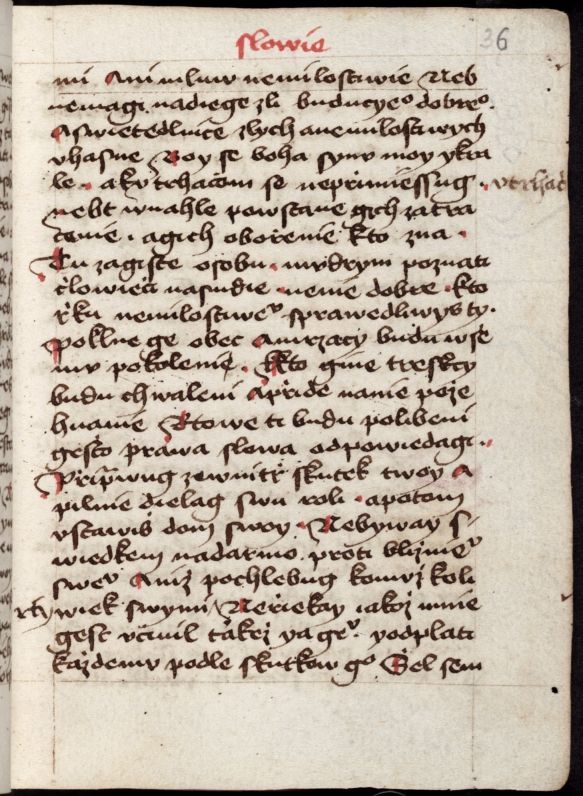 slowie
36
mi Ani miluw nemilostiwie Neb
nemagi nadiege zli buducyeº dobreº.
A swietedlnice zlych a nemilostiwych
vhasne Boy se boha synv moy y kra
le . a kv trhačom se nepřimiessug . vtrhač
nebt wnahle powstane gich zatra
cenie . a gich obořenie kto zna .
Tu zagiste osobu . mvdrym poznati
člowieka na sudie . nenie dobře . kto
řku nemilostiweº sprawedliwys ty .
poklne ge obec A mrzacy budu wse
mv pokolenie . Kto gine tresKcy
budu chwaleni A přide na nie poże
hnanie Ktowe ti budu polibeni
gesto prawa slowa odpowiedagi .
Připrawug zewnitř skutek twoy A
pilnie dielag swu roli . a potom
vstawis dom swoy . Nebyway s
wiedkem nadarmo . proti bliżnieº
sweº Aniż pochlebug komvż koli
rty wiek swymi Neřiekay iakoż mnie
gest včinil takeż ya geº . y odplati
każdemv podle skutkow gº Šel sem